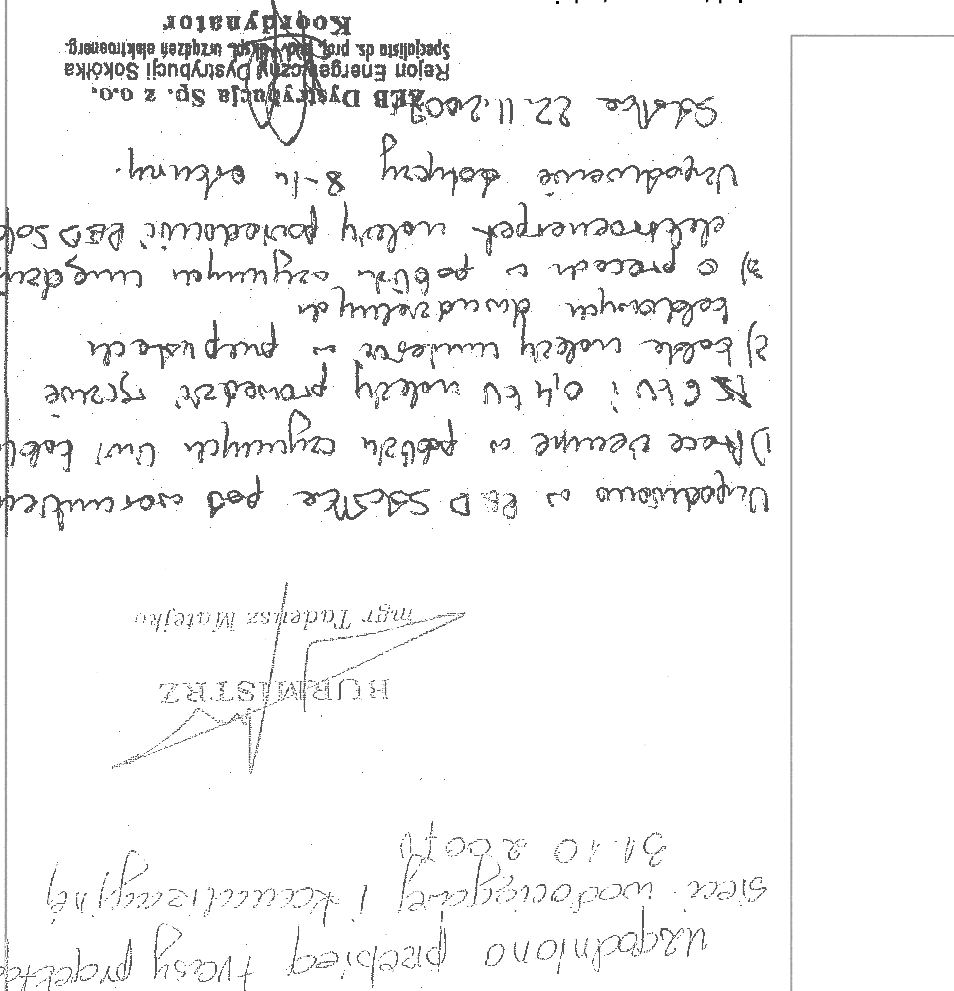 Uzgodniono przebieg trasy projekto
sieci wodociągowej i kanalizacyjnej
31.10 2007r
BURMISTRZ
mgr Tadeusz Matejko
Uzgodniono w RED Sokółka pod warunkiem
1) Prace ziemne w pobliżu czynnych linii kablo
6 kV i 0,4 kV należy prowadzić ręcznie
2) kable należy umieścić w przepustach
kablowych dwudzielnych
3) o pracach w pobliżu czynnych urządzeń
elektroenerget. należy powiadomić RED Sok
Uzgodnienie dotyczy 8-iu arkuszy.
Sokółka 22.11.2007
ZEB Dystrybucja Sp. z o.o.
Rejon Energetyczny Dystrybucji Sokółka
Specjalista ds. urządzeń elektroenerg.
Koordynator